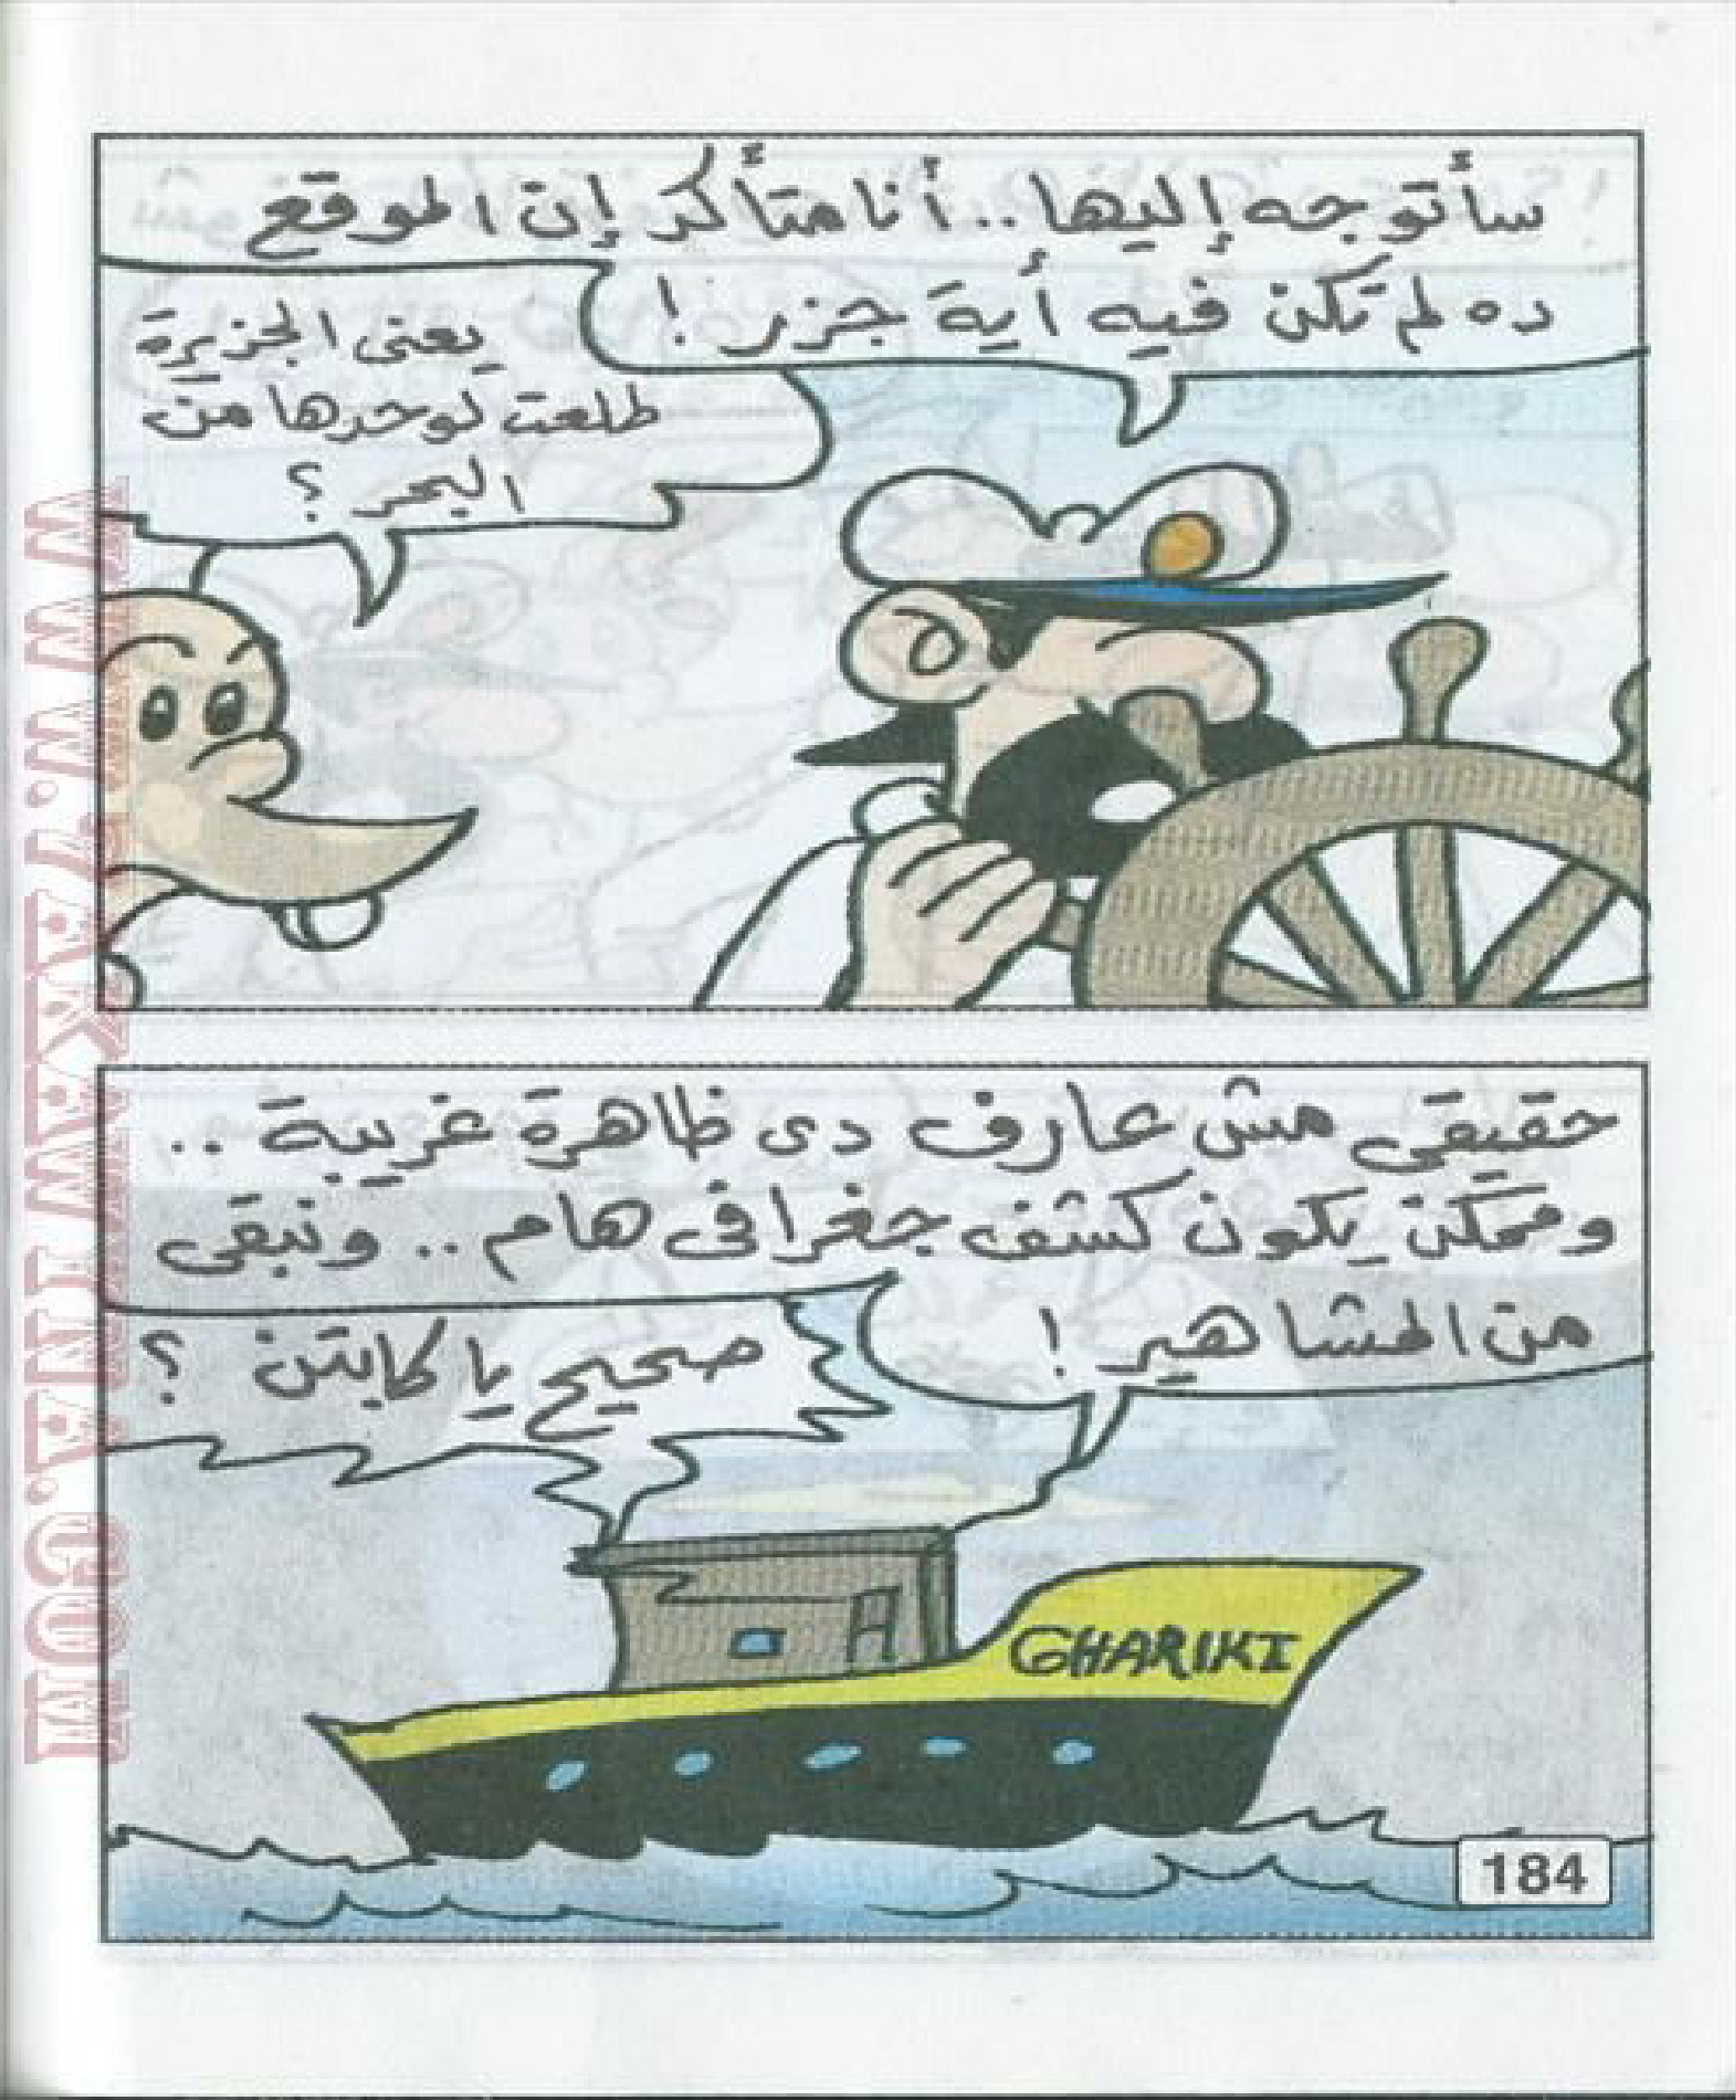 سأتوجه إليها.. أنا متأكد إن الموقع
ده لم تكن فيه أية جزر!
يعنى الجزيرة
طلعت لوحدها من
البحر؟
حقيقى مش عارف دى ظاهرة غريبة ..
وممكن يكون كشف جغرافى هام .. ونبقى
من المشاهير!
صحيح يا كابتن ؟
GHARIKI
184